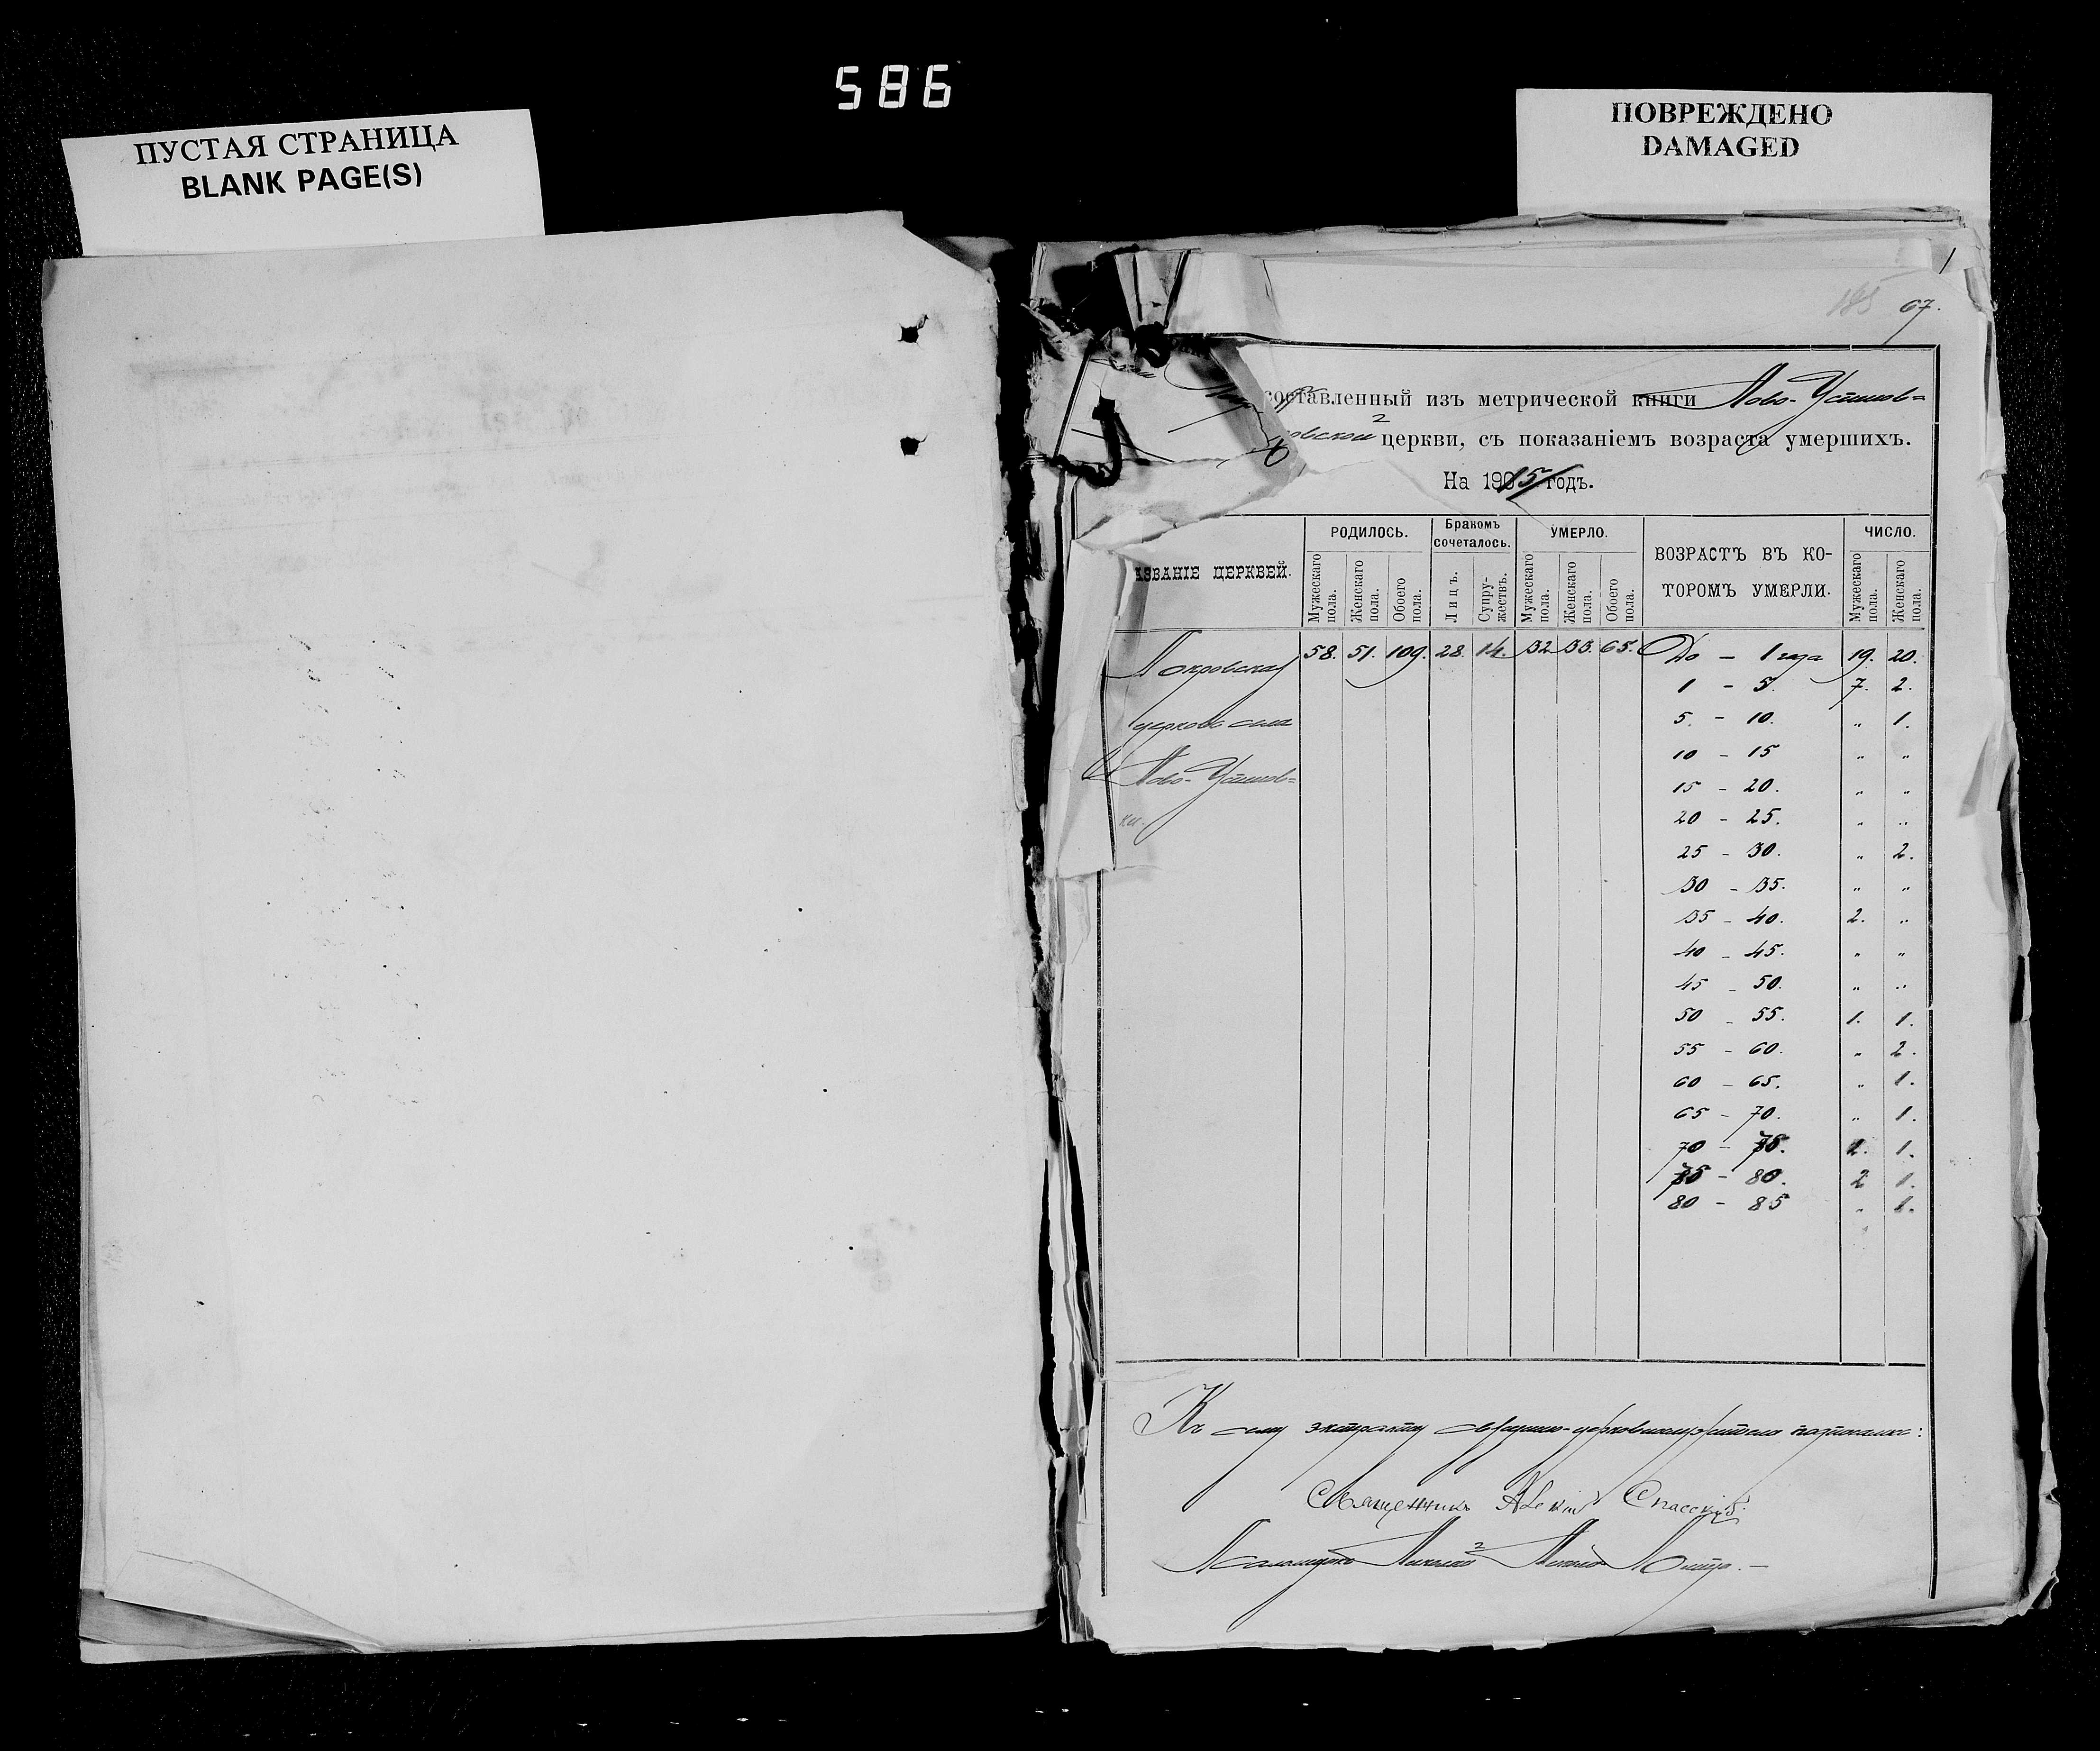 586
ПУСТАЯ СТРАНИЦА
BLANK PAGE(S)
ПОВРЕЖДЕНО
DAMAGED
185 67.
составленный изъ метрической книги Ново-Устинов=
ровской церкви, съ показаніемъ возраста умершихъ.
На 1915 годъ.
АЗВАНІЕ ЦЕРКВЕЙ.
РОДИЛОСЬ.
Бракомъ сочеталось.
УМЕРЛО.
ВОЗРАСТЪ ВЪ КО-
ТОРОМЪ УМЕРЛИ.
ЧИСЛО.
Мужескаго пола. Женскаго пола. Обоего пола. Лицъ. Супружествъ. Мужескаго пола. Женскаго пола. Обоего пола. Мужескаго пола. Женскаго пола.
Покровская 58. 51. 109. 28. 14. 32 33. 65. До – 1 года 19. 20.
1 – 5. 7. 2.
церковь села 5. – 10. „ 1.
10 – 15 „ „
Ново-Устинов= 15 – 20. „ „
ки. 20 – 25. „ „
25 – 30. „ 2.
30 – 35. „ „
35 – 40. 2. „
40 – 45. „ „
45 – 50. „ „
50 – 55. 1. 1.
55 – 60. „ 2.
60 – 65. „ 1.
65 – 70. „ 1.
70 – 75. 1. 1.
75 – 80. 2 1.
80 – 85 „ 1.
Къ сему экстракту священно-церковнослужители подписались:
Священникъ Алексій Спасскій.
Псаломщикъ